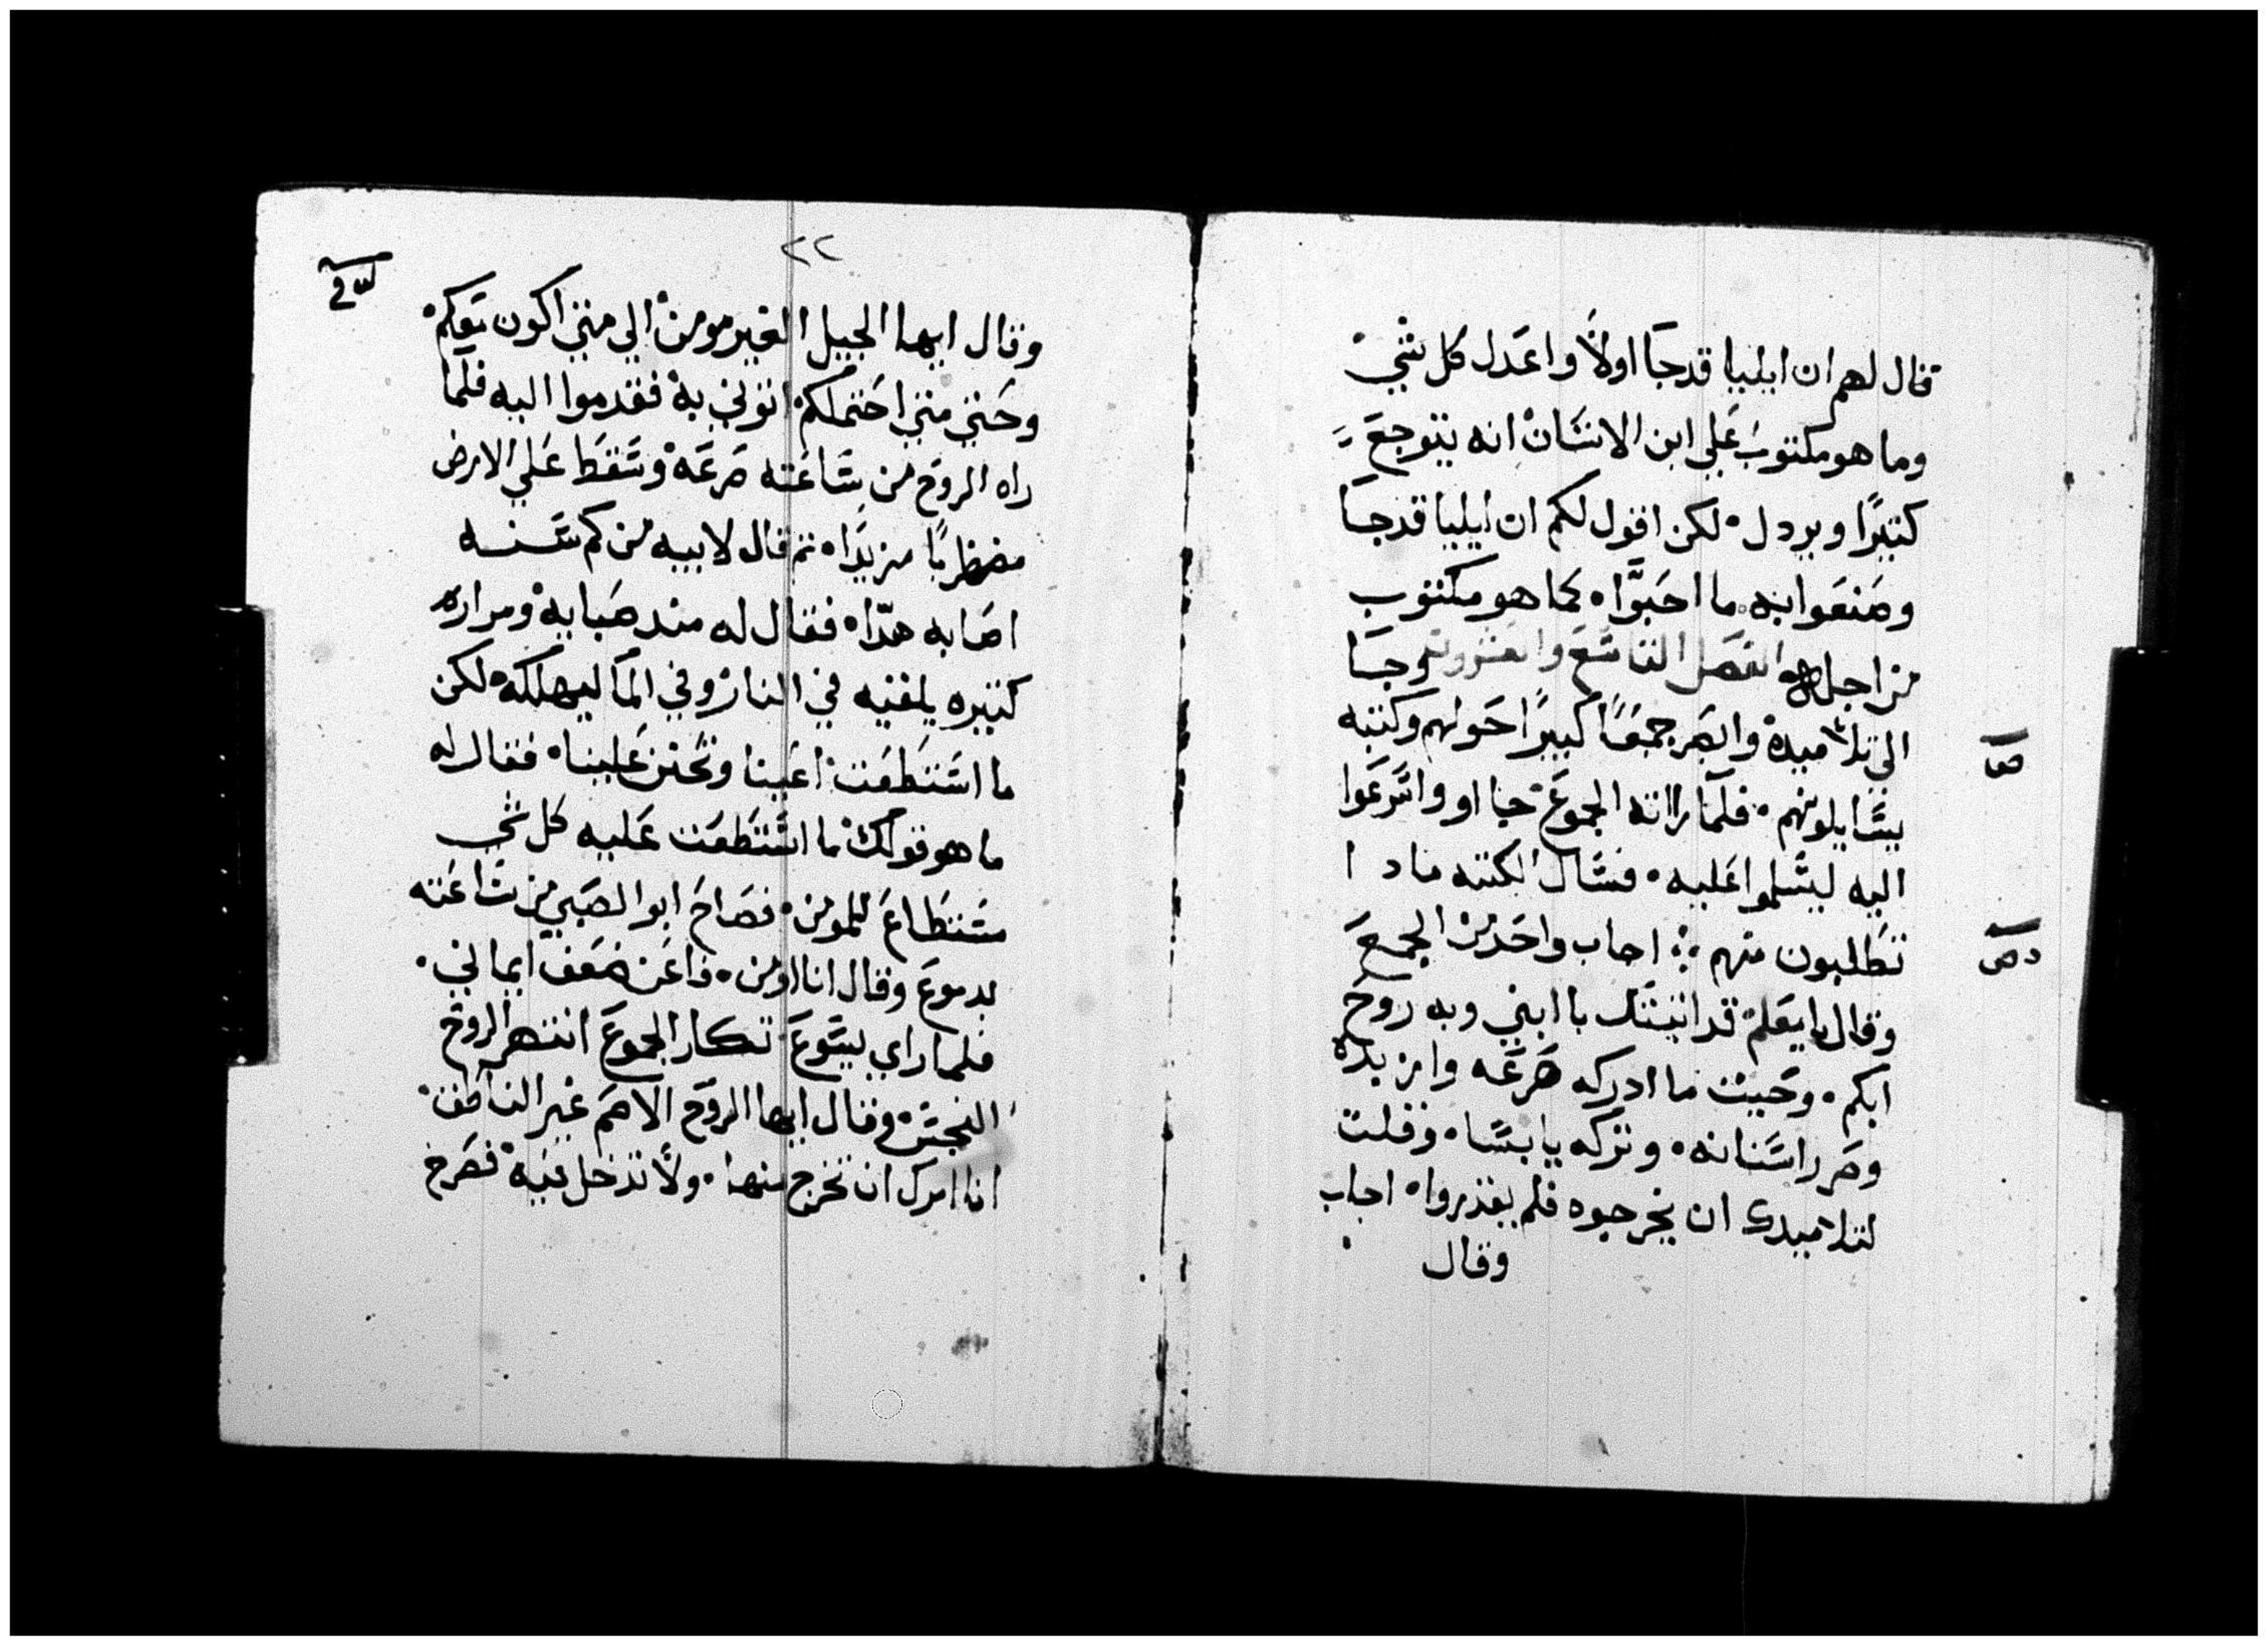 قال لهم ان ايليا قد جا اولًا واعدل كل شي
وما هو مكتوب علي ابن الانسان انه يتوجع
كثيرًا ويردل لكن اقول لكم ان ايليا قد جا
وصنعوا به ما احبوا كما هو مكتوب
من اجله الفصل التاسع والعشرون وجا
الي تلاميده وابصر جمعًا كبيرًا حولهم وكتبه
يسايلونهم فلما راته الجموع خافو واسرعوا
اليه ليسلموا عليه فسال الكتبه مادا
تطلبون منهم اجاب واحد من الجمع
وقال يا معلم قد اتيتك بابني وبه روح
ابكم وحيث ما ادركه صرعه وازبده
وصر اسنانه وتركه يابسا وقلت
لتلاميدك ان يخرجوه فلم يقدروا اجاب
وقال
ص
دص
٢٢
وقال ايها الجيل الغير مومن الي متي اكون معكم
وحتي متي احتملكم اتوني به فقدموا اليه فلما
راه الروح من ساعته صرعه وسقط علي الارض
مضطربًا مزبدا تم قال لابيه من كم سنه
اصابه هدا فقال له مند صبايه ومرار
كثيره يلقيه في النار وفي الما ليهلكه لكن
ما استطعت اعينا وتحنن علينا فقال له
ما هو قولك ما استطعت عليه كل شي
مستطاع للمومن فصاح ابو الصبي من ساعته
بدموع وقال انا اومن فاعن ضعف ايماني
فلما راي يسوع تكار الجموع انتهر الروح
النجس وقال ايها الروح الاصم غير الناطق
انا امرك ان تخرج منه ولا تدخل فيه فصرخ